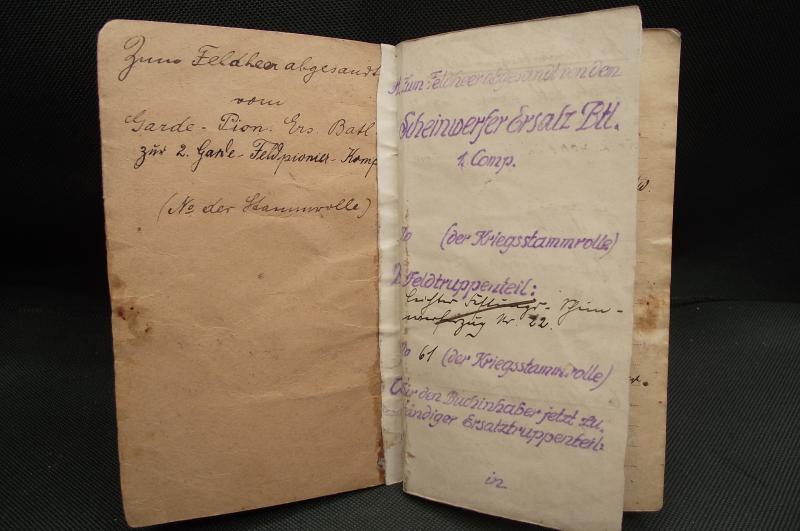 Zum Feldheer abgesandt
vom
Garde-Pion. Ers. Batl
zur 2. Garde-Feldpionier-Komp
(No der Stammrolle)
Zum Feldheer abgesandt von dem
Scheinwerfer Ersatz Btl.
1. Comp.
No (der Kriegsstammrolle)
2. Feldtruppenteil:
leichter Schein-
werferzug Nr. 22.
No 61 (der Kriegsstammrolle)
Für den Buchinhaber jetzt zu-
ständiger Ersatztruppenteil:
in